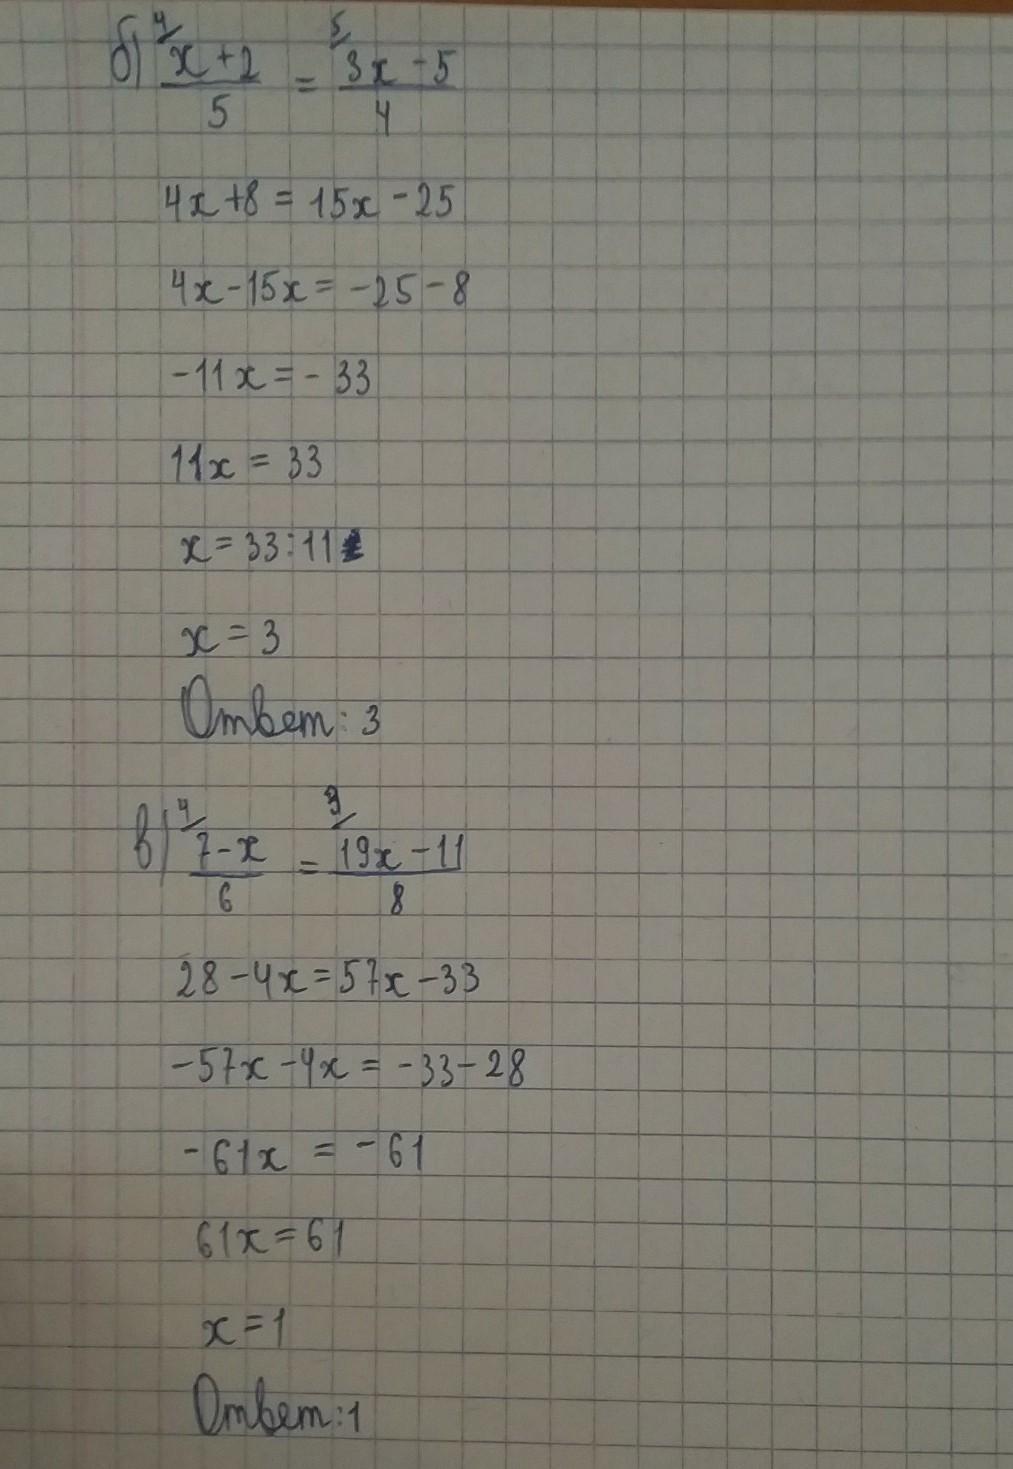 б) 4/ x+2 / 5 = 5/ 3x-5 / 4
4x+8=15x-25
4x-15x=-25-8
-11x=-33
11x=33
x=33:11
x=3
Ответ: 3
в) 4/ 7-x / 6 = 3/ 19x-11 / 8
28-4x=57x-33
-57x-4x=-33-28
-61x=-61
61x=61
x=1
Ответ: 1